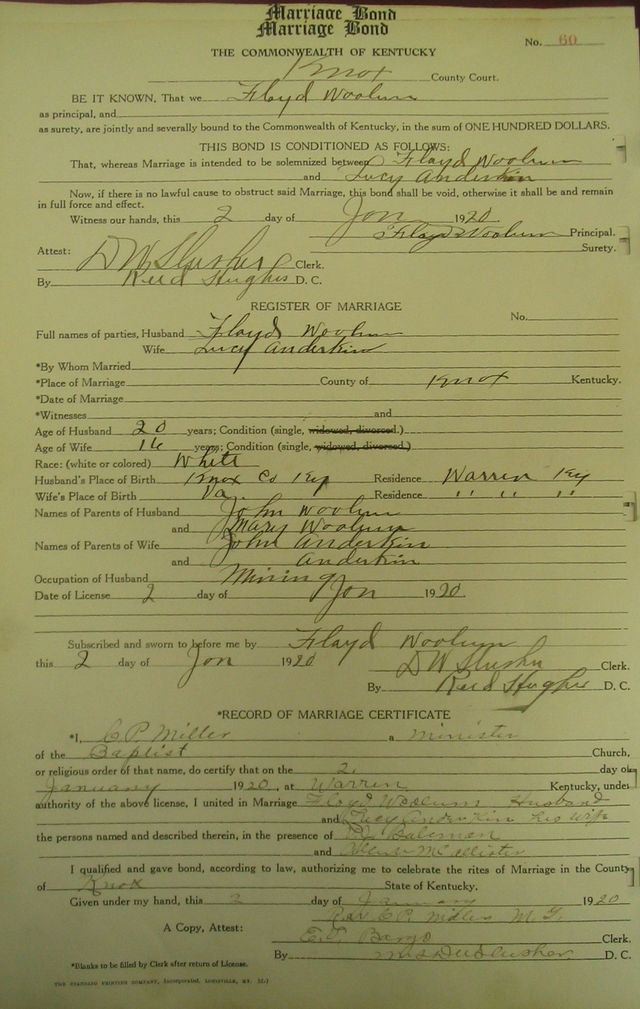 Marriage Bond
Marriage Bond
No. 60
THE COMMONWEALTH OF KENTUCKY
Knox County Court.
BE IT KNOWN, That we Floyd Woolum
as principal, and
as surety, are jointly and severally bound to the Commonwealth of Kentucky, in the sum of ONE HUNDRED DOLLARS.
THIS BOND IS CONDITIONED AS FOLLOWS:
That, whereas Marriage is intended to be solemnized between Floyd Woolum
and Lucy Anderkin
Now, if there is no lawful cause to obstruct said Marriage, this bond shall be void, otherwise it shall be and remain
in full force and effect.
Witness our hands, this 2 day of Jan 1920
Floyd Woolum Principal.
Attest: Surety.
D W Slusher Clerk.
By Reed Hughes D. C.
REGISTER OF MARRIAGE
No.
Full names of parties, Husband Floyd Woolum
Wife Lucy Anderkin
*By Whom Married
*Place of Marriage County of Knox Kentucky.
*Date of Marriage
*Witnesses and
Age of Husband 20 years; Condition (single, widowed, divorced.)
Age of Wife 16 years; Condition (single, widowed, divorced.)
Race: (white or colored) White
Husband's Place of Birth Knox Co Ky Residence Warren Ky
Wife's Place of Birth Va. Residence " " "
Names of Parents of Husband John Woolum
and Mary Woolum
Names of Parents of Wife John Anderkin
and Anderkin
Occupation of Husband Mining
Date of License 2 day of Jan 1920.
Subscribed and sworn to before me by Floyd Woolum
this 2 day of Jan 1920 D W Slusher Clerk.
By Reed Hughes D. C.
*RECORD OF MARRIAGE CERTIFICATE
*I, C P Miller a minister
of the Baptist Church,
or religious order of that name, do certify that on the 2. day of
January 1920, at Warren Kentucky, under
authority of the above license, I united in Marriage Floyd Woolum Husband
and Lucy Anderkin his wife
the persons named and described therein, in the presence of Bateman
and McAllister
I qualified and gave bond, according to law, authorizing me to celebrate the rites of Marriage in the County
of Knox State of Kentucky.
Given under my hand, this 2 day of January 1920
Rev C P Miller M. G.
A Copy, Attest:
E. T. Clerk.
By Slusher D. C.
*Blanks to be filled by Clerk after return of License.
THE STANDARD PRINTING COMPANY, Incorporated, LOUISVILLE, KY.